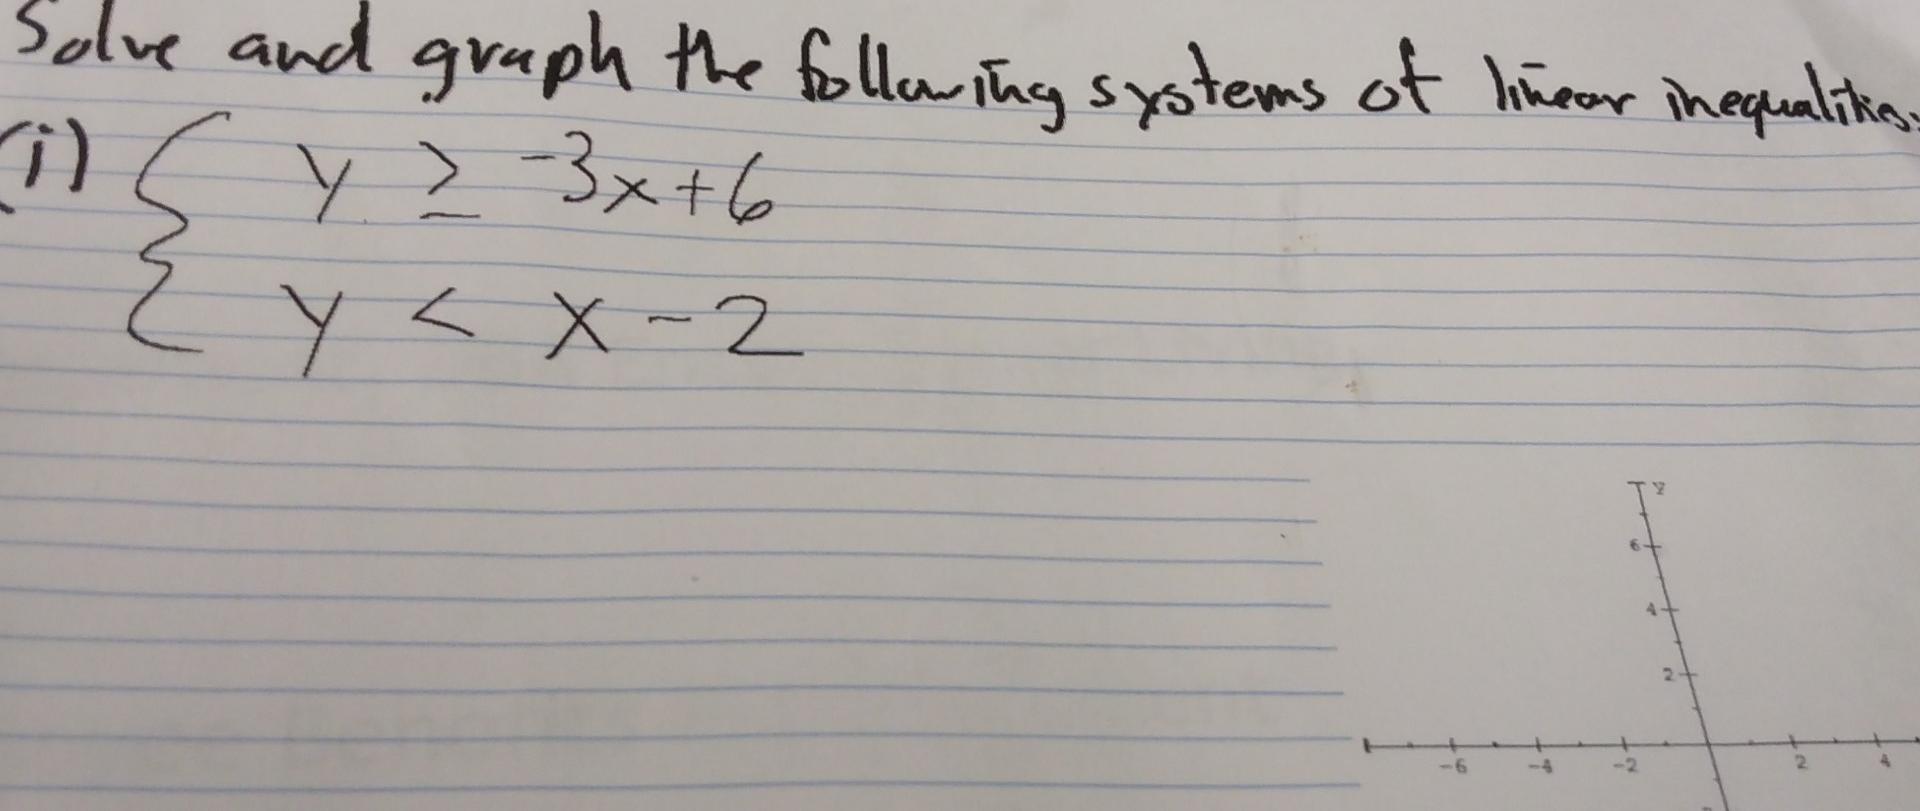 Solve and graph the following systems of linear inequalities.
(i) { y ≥ -3x+6
y < x-2
y
6
4
2
-6 -4 -2 2 4